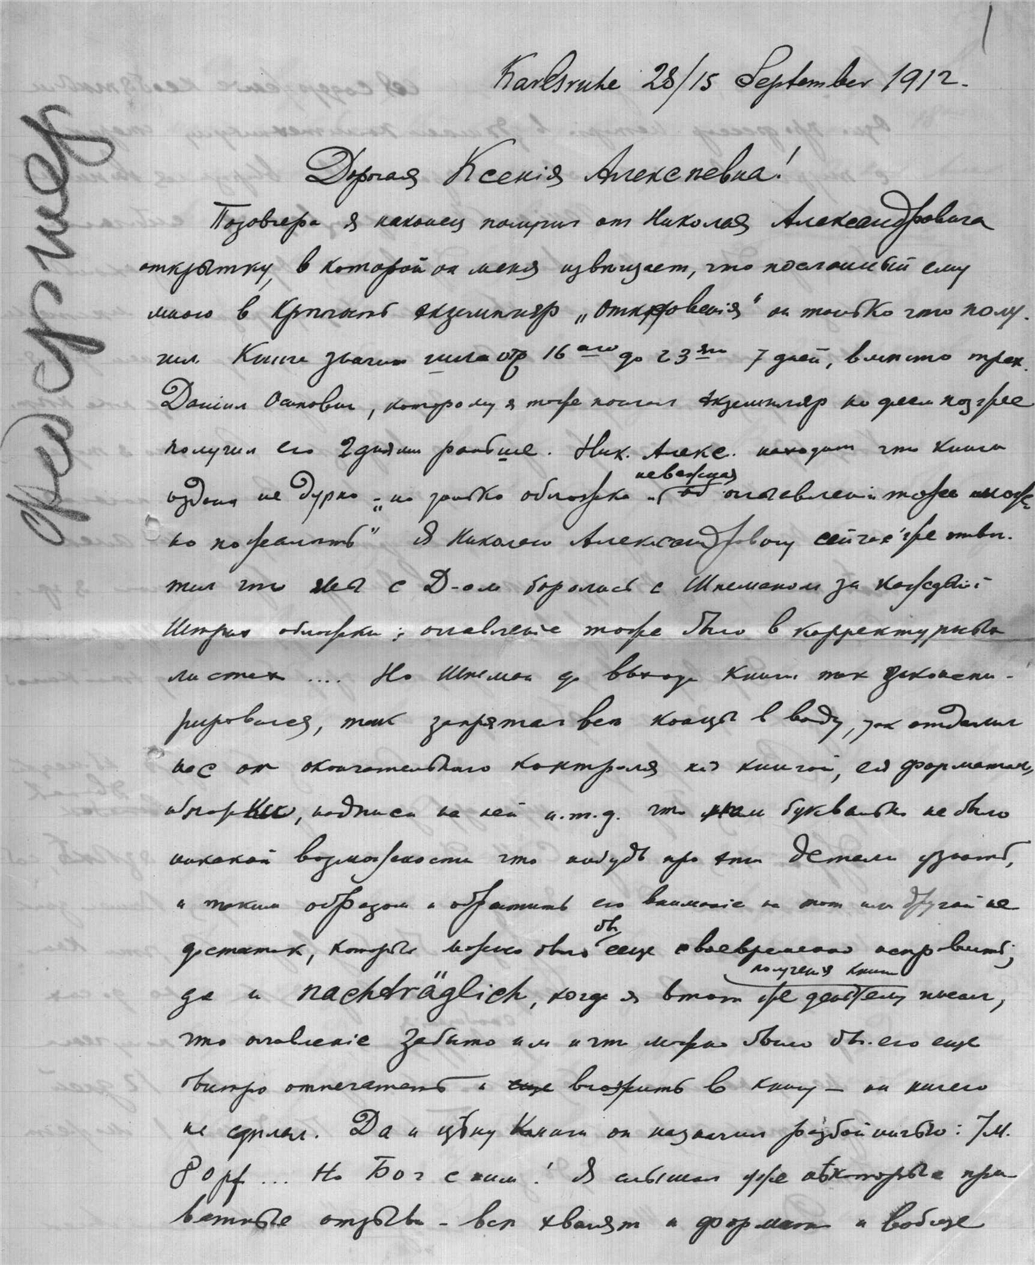 1
Karlsruhe 28/15 September 1912.
Дорогая Ксенія Алексѣевна!
Позавчера я наконец получил от Николая Александровича
открытку, в которой он меня извѣщает, что посланный ему
мною в экземпляр „Откровенія“ он только что полу-
чил Книги значит шла от 16 аго до 23 яго 7 дней, вмѣсто трех.
Даніил Осипович, которому я тоже послал экземпляр но днем позднее
получил его 2 днями раньше. Ник. Алекс. находит что книга
издана не дурно „но только обложка неважная об оглавленіи тоже можно
но пожалѣть“ Я Николаю Александровичу сейчас же отвѣ-
тил что мы с Д-ом боролись с Шпеманом за каждый
Штрих обложки; оглавленіе тоже было в корректурных
листах .... Но Шпеман до выхода Книги так законспи-
рировался, так запрятал всѣ концы в воду, так отдалил
нас от окончательнаго контроля над книгой, ея форматом,
обложки, надписи на ней и.т.д. что нам буквально не было
никакой возможности что нибудь про эти детали узнать,
и таким образом и обратить его вниманіе на тот или другой не
достаток, который можно было бы еще своевременно исправить;
да и nachträglich, когда я в тот же день получения книги писал,
что оглавленіе забыто им и что можно было бы его еще
быстро отпечатать и вложить в книгу — он ничего
не сдѣлал. Да и цѣну Книги он назначил разбойничью: 7 М.
80 pf ... Но Бог с ним! Я слышал уже нѣкоторые при
ватные отзывы - всѣ хвалят и формат и вообще